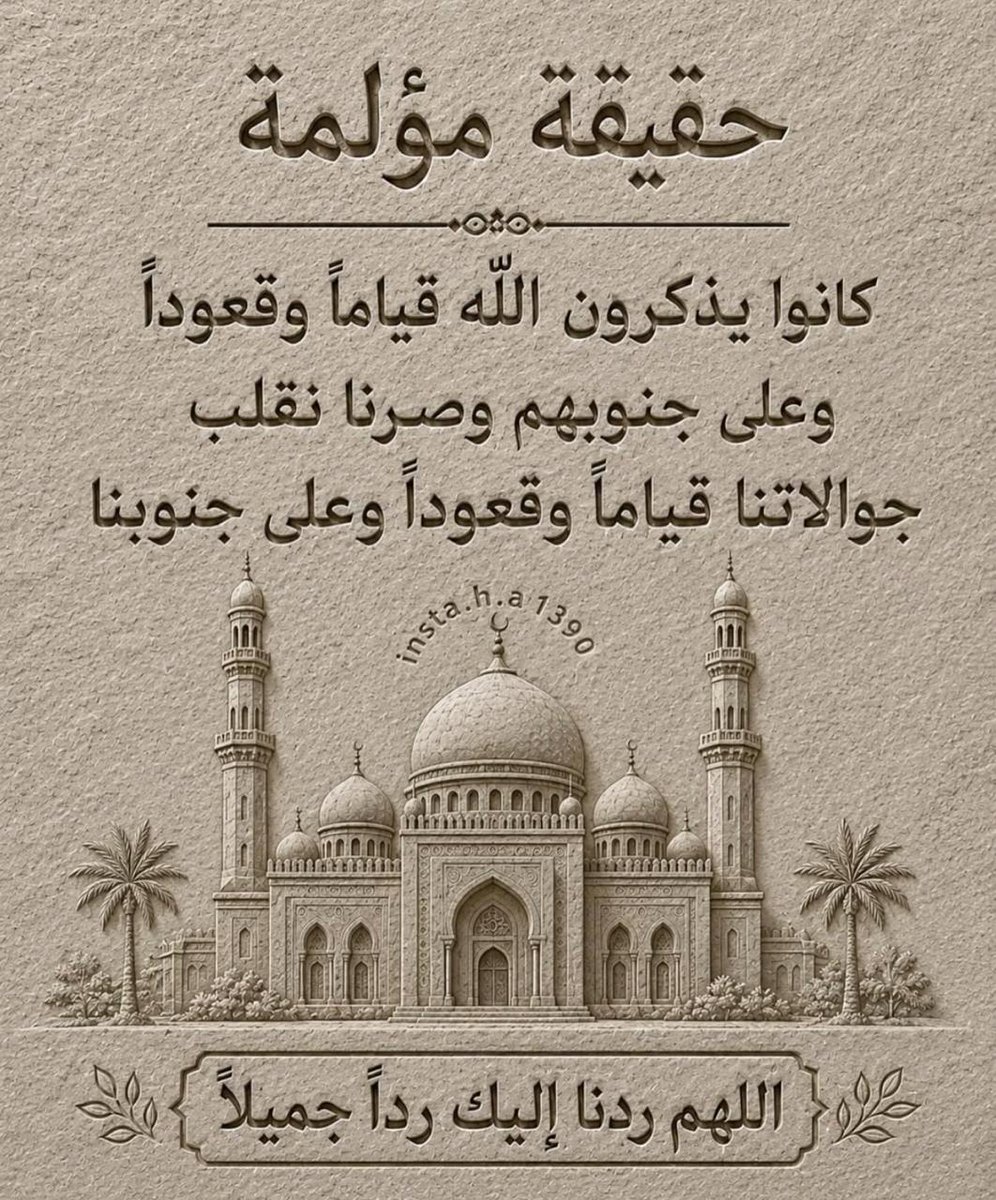 حقيقة مؤلمة
كانوا يذكرون الله قياماً وقعوداً
وعلى جنوبهم وصرنا نقلب
جوالاتنا قياماً وقعوداً وعلى جنوبنا
insta.h.a 1390
اللهم ردنا إليك رداً جميلاً